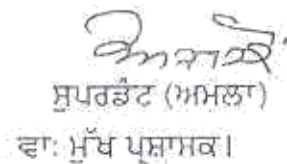 ਸੁਪਰਡੰਟ (ਅਮਲਾ)
ਵਾ: ਮੁੱਖ ਪ੍ਰਸ਼ਾਸਕ।